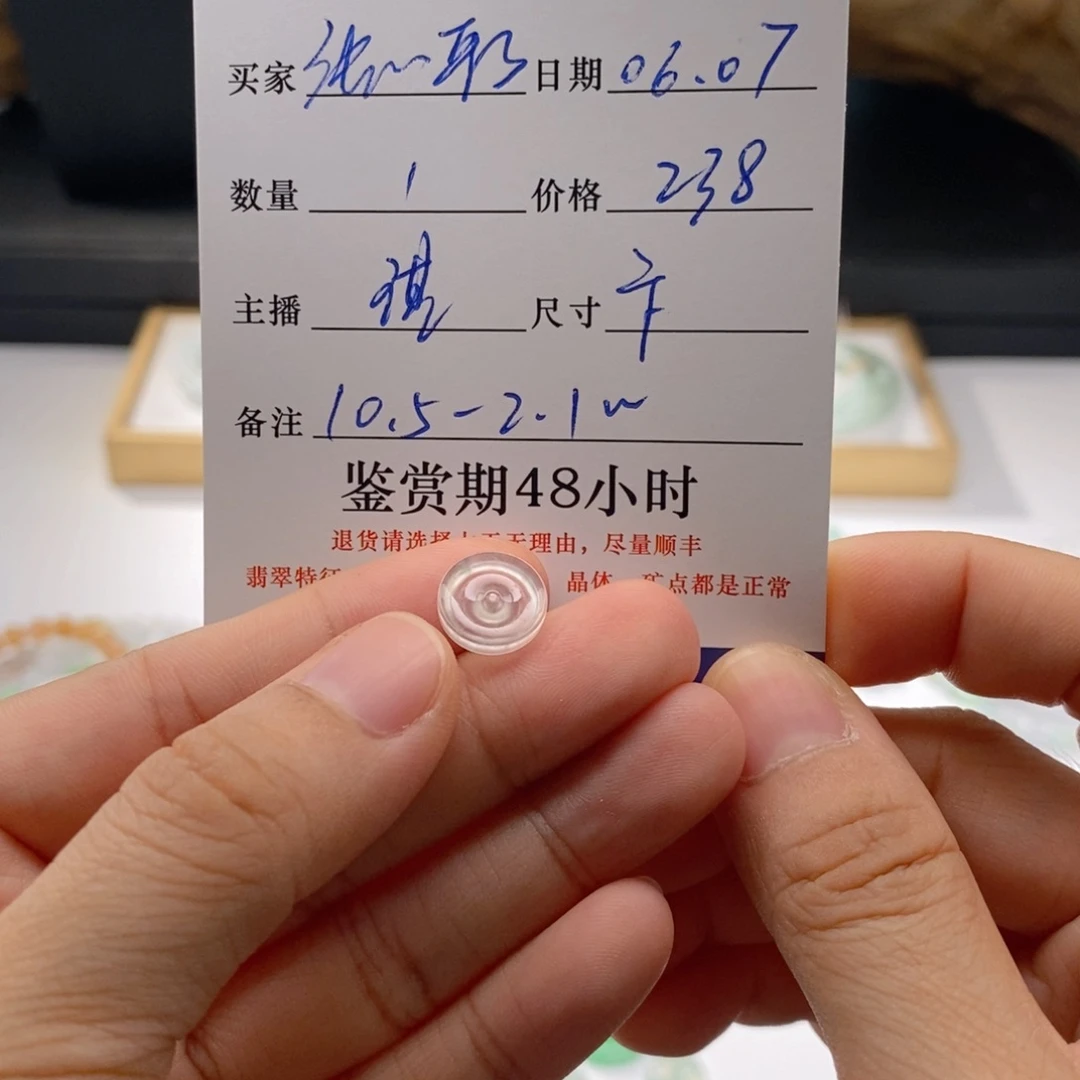 买家 张 日期 06.07
数量 1 价格 238
主播 琪 尺寸 卡
备注 10.5-2.1
鉴赏期48小时
退货请选择 无理由，尽量顺丰
翡翠特征 晶体 矿点都是正常